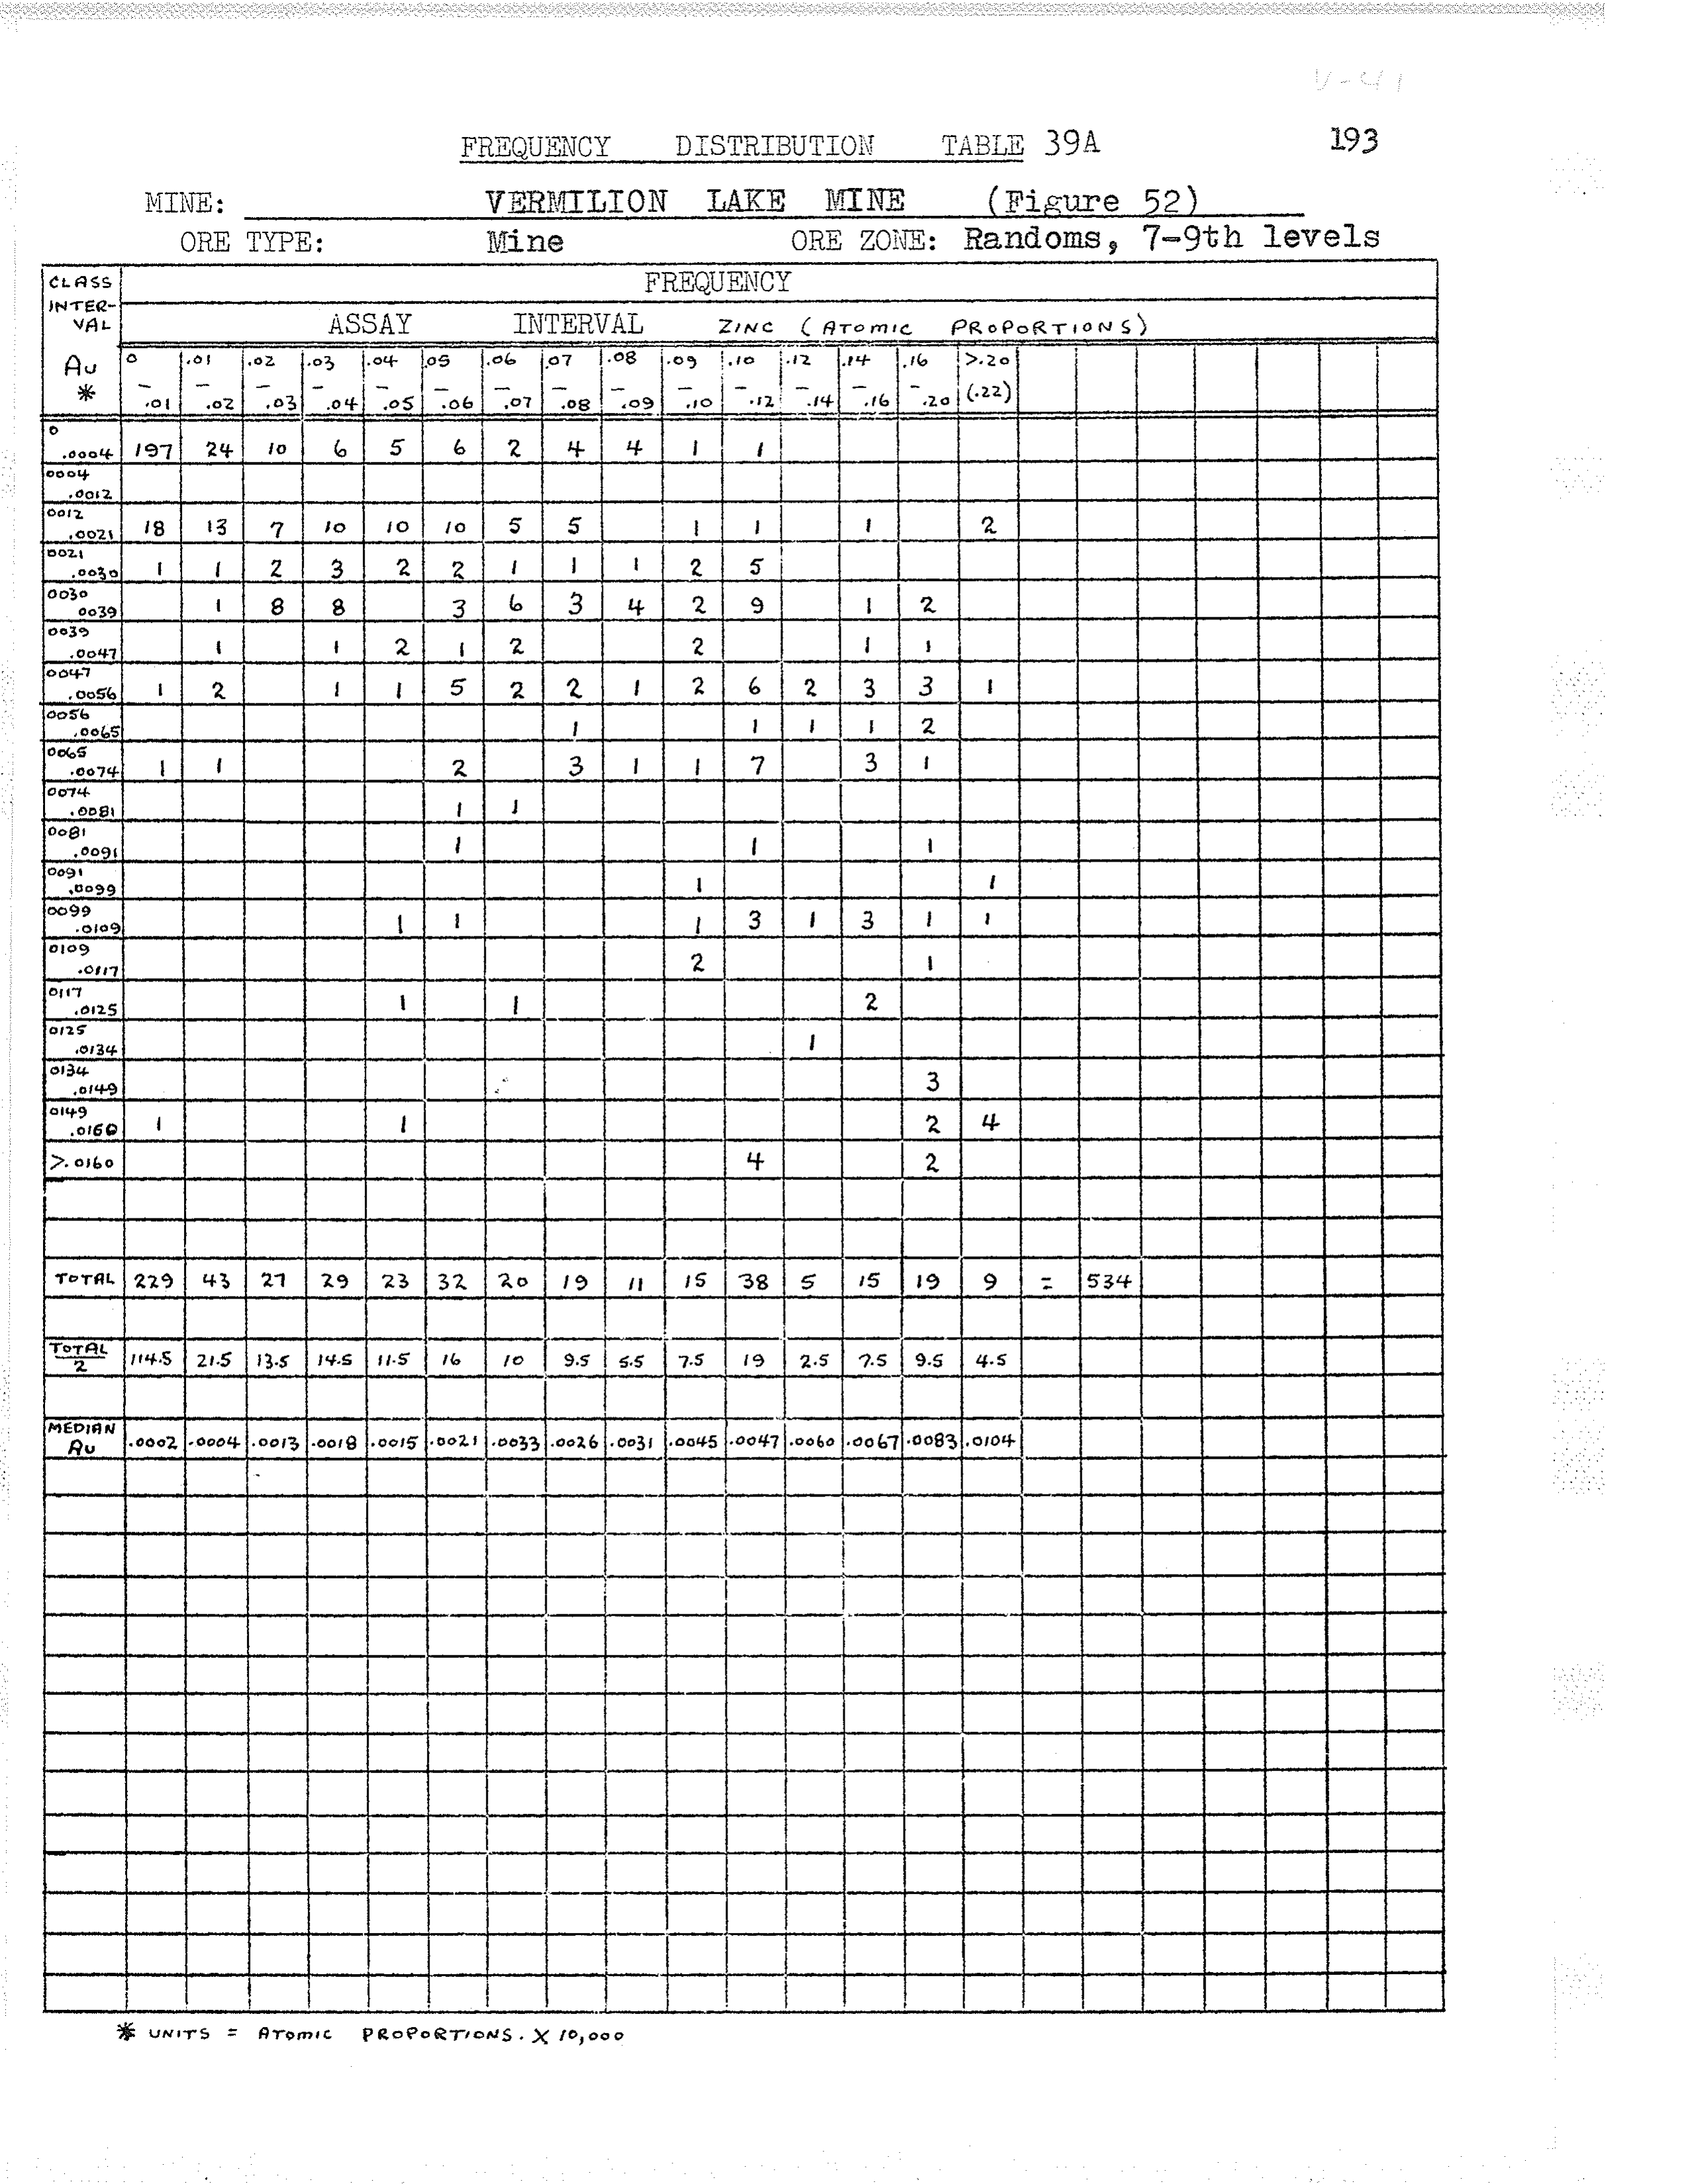 V-41
FREQUENCY DISTRIBUTION TABLE 39A 193
MINE: VERMILION LAKE MINE (Figure 52)
ORE TYPE: Mine ORE ZONE: Randoms, 7-9th levels
CLASS INTER-VAL Au * FREQUENCY
ASSAY INTERVAL ZINC (ATOMIC PROPORTIONS)
0 .01 .02 .03 .04 .05 .06 .07 .08 .09 .10 .12 .14 .16 >.20
– – – – – – – – – – – – – –
.01 .02 .03 .04 .05 .06 .07 .08 .09 .10 .12 .14 .16 .20 (.22)
0 .0004 197 24 10 6 5 6 2 4 4 1 1
0004 .0012
0012 .0021 18 13 7 10 10 10 5 5 1 1 1 2
0021 .0030 1 1 2 3 2 2 1 1 1 2 5
0030 0039 1 8 8 3 6 3 4 2 9 1 2
0039 .0047 1 1 2 1 2 2 1 1
0047 .0056 1 2 1 1 5 2 2 1 2 6 2 3 3 1
0056 .0065 1 1 1 1 2
0065 .0074 1 1 2 3 1 1 7 3 1
0074 .0081 1 1
0081 .0091 1 1 1
0091 .0099 1 1
0099 .0109 1 1 1 3 1 3 1 1
0109 .0117 2 1
0117 .0125 1 1 2
0125 .0134 1
0134 .0149 3
0149 .0160 1 1 2 4
>.0160 4 2
TOTAL 229 43 27 29 23 32 20 19 11 15 38 5 15 19 9 = 534
TOTAL 2 114.5 21.5 13.5 14.5 11.5 16 10 9.5 5.5 7.5 19 2.5 7.5 9.5 4.5
MEDIAN Au .0002 .0004 .0013 .0018 .0015 .0021 .0033 .0026 .0031 .0045 .0047 .0060 .0067 .0083 .0104
* UNITS = ATOMIC PROPORTIONS. X 10,000